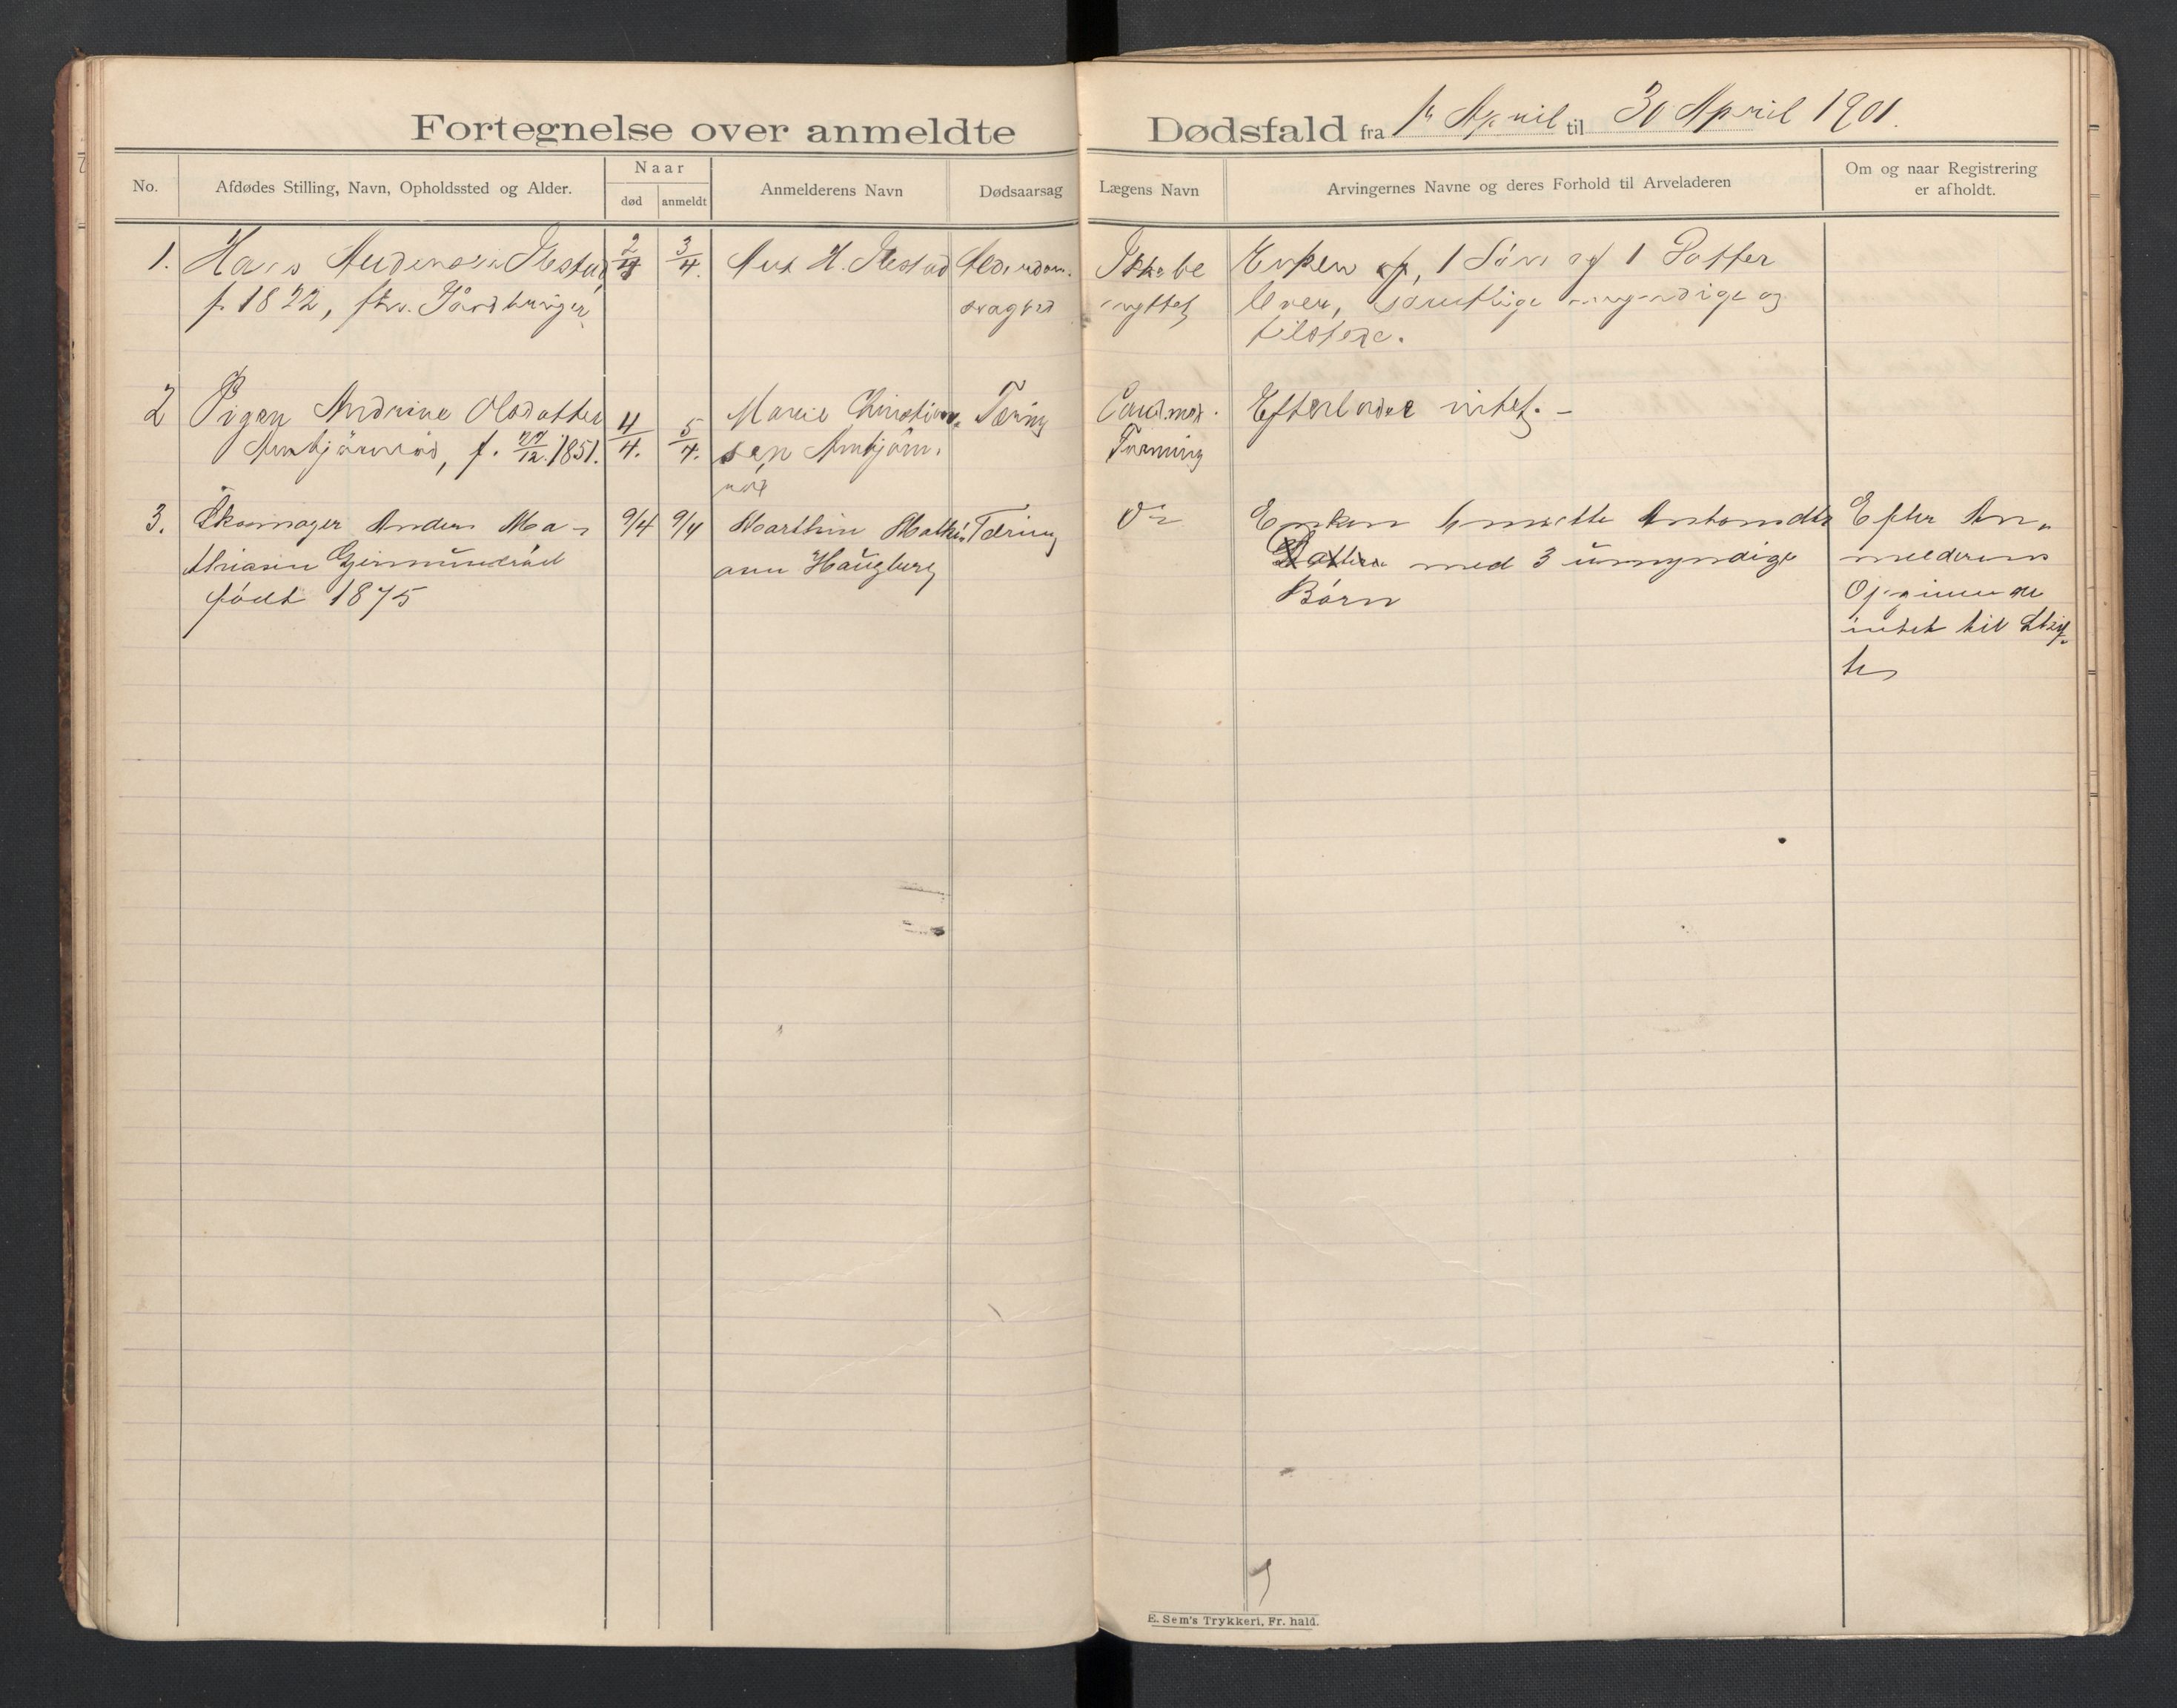 Fortegnelse over anmeldte Dødsfald fra 1ste April til 30 April 1901.
No.
Afdødes Stilling, Navn, Opholdssted og Alder.
Naar
død
anmeldt
Anmelderens Navn
Dødsaarsag
Lægens Navn
Arvingernes Navne og deres Forhold til Arveladeren
Om og naar Registrering
er afholdt.
1.
Hans
f. 1822, fhv. Gårdbruger
2/4
3/4.
H.
Alderdoms-
svaghed
Ikke be
nyttet
Enken og, 1 Søn og 1 Datter
lever, samtlige myndige og
tilstede.
2
Pigen Andrine Olsdatter
Arnbjørnrød, f. 27/12 1851.
4/4.
5/4.
Marie Christian-
sen Arnbjørn-
rød
Tæring
Cand. med.
Tørning
Efterlader intet. -
3.
Skomager Anders Ma-
thiasen Geimundrød
født 1875
9/4
9/4
Marthin
Haugberg
Tæring
Do
Enken Annette Antonsdtr
Datter med 3 umyndige
Børn
Efter An-
melderens
Opgivende
intet til Skif-
te
E. Sem's Trykkeri, Fr. hald.